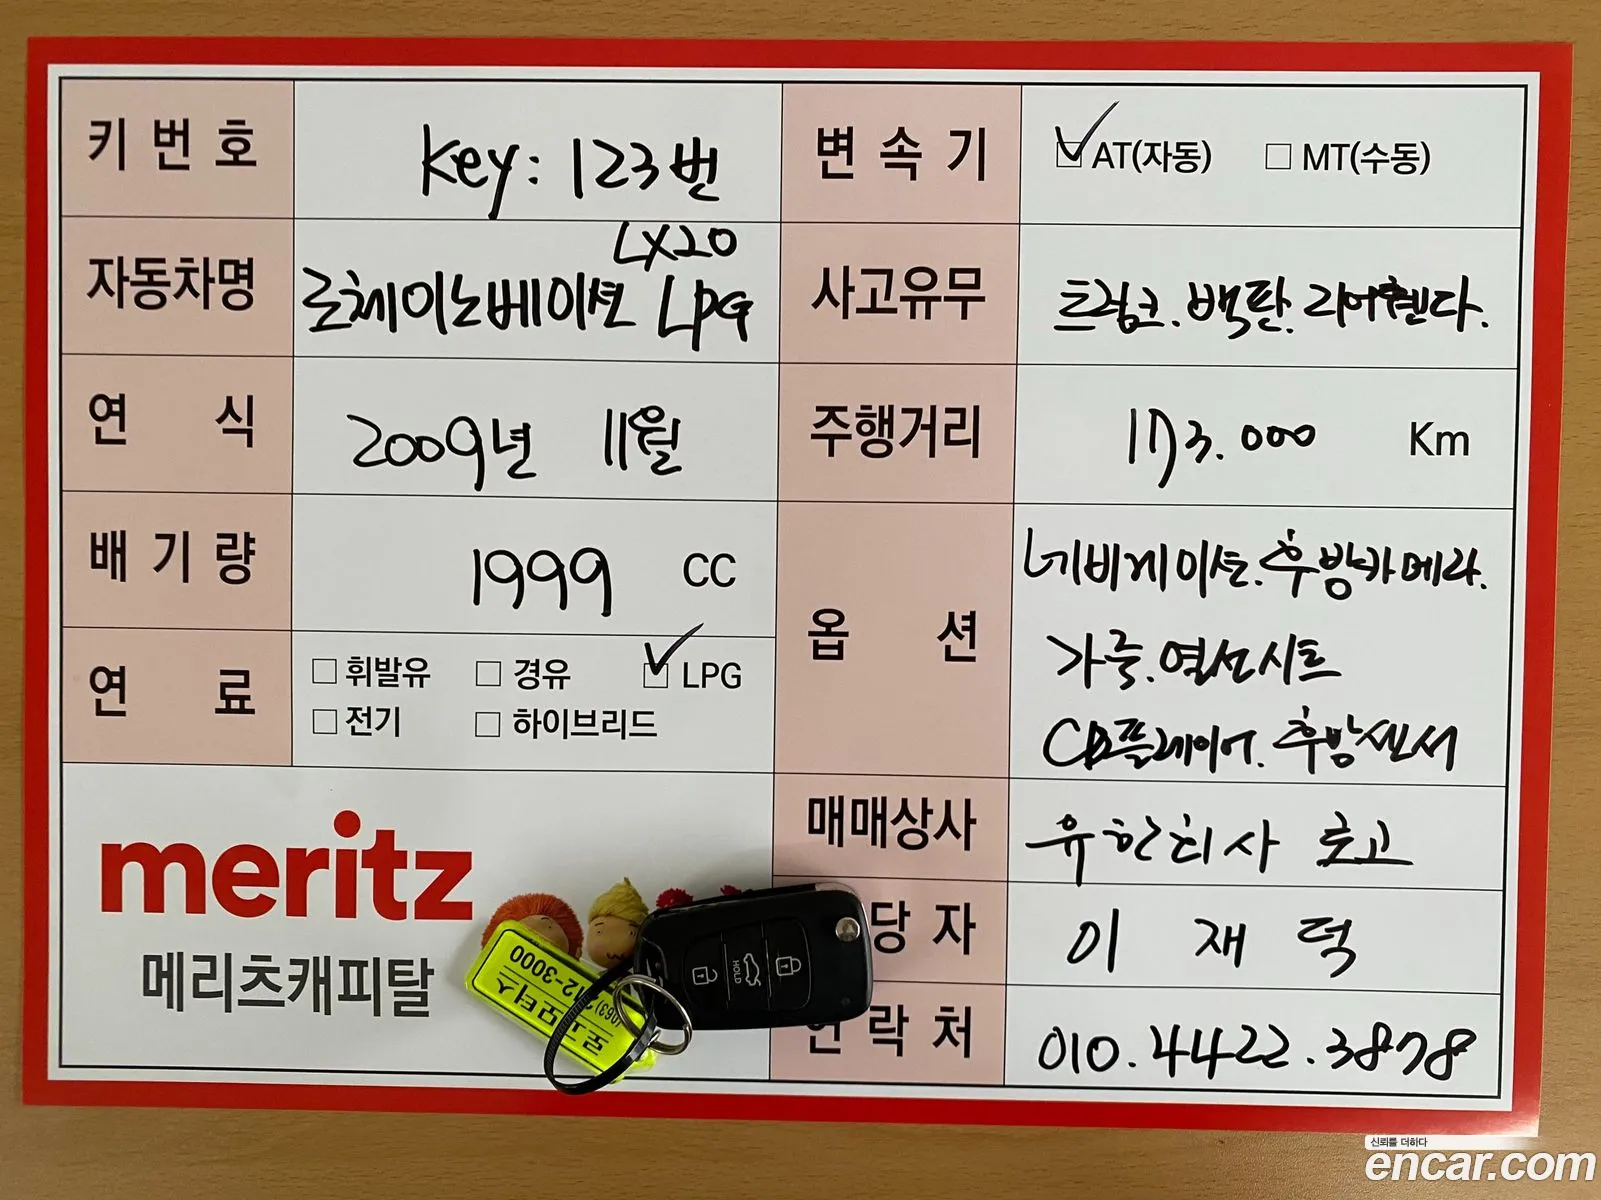 키 번 호
Key: 123번
변 속 기
AT(자동)
MT(수동)
자동차명
LX20
로체이노베이션 LPG
사고유무
트렁크. 백판. 리어휀다.
연 식
2009년 11월
주행거리
173.000 Km
배 기 량
1999 CC
옵 션
네비게이션. 후방카메라.
가죽. 열선시트
CD플레이어. 후방센서
연 료
휘발유
경유
LPG
전기
하이브리드
매매상사
유한회사 로고
당 자
이 재 덕
연 락 처
010.4422.3878
meritz
메리츠캐피탈
로고모터스
HOLD
신뢰를 더하다
encar.com